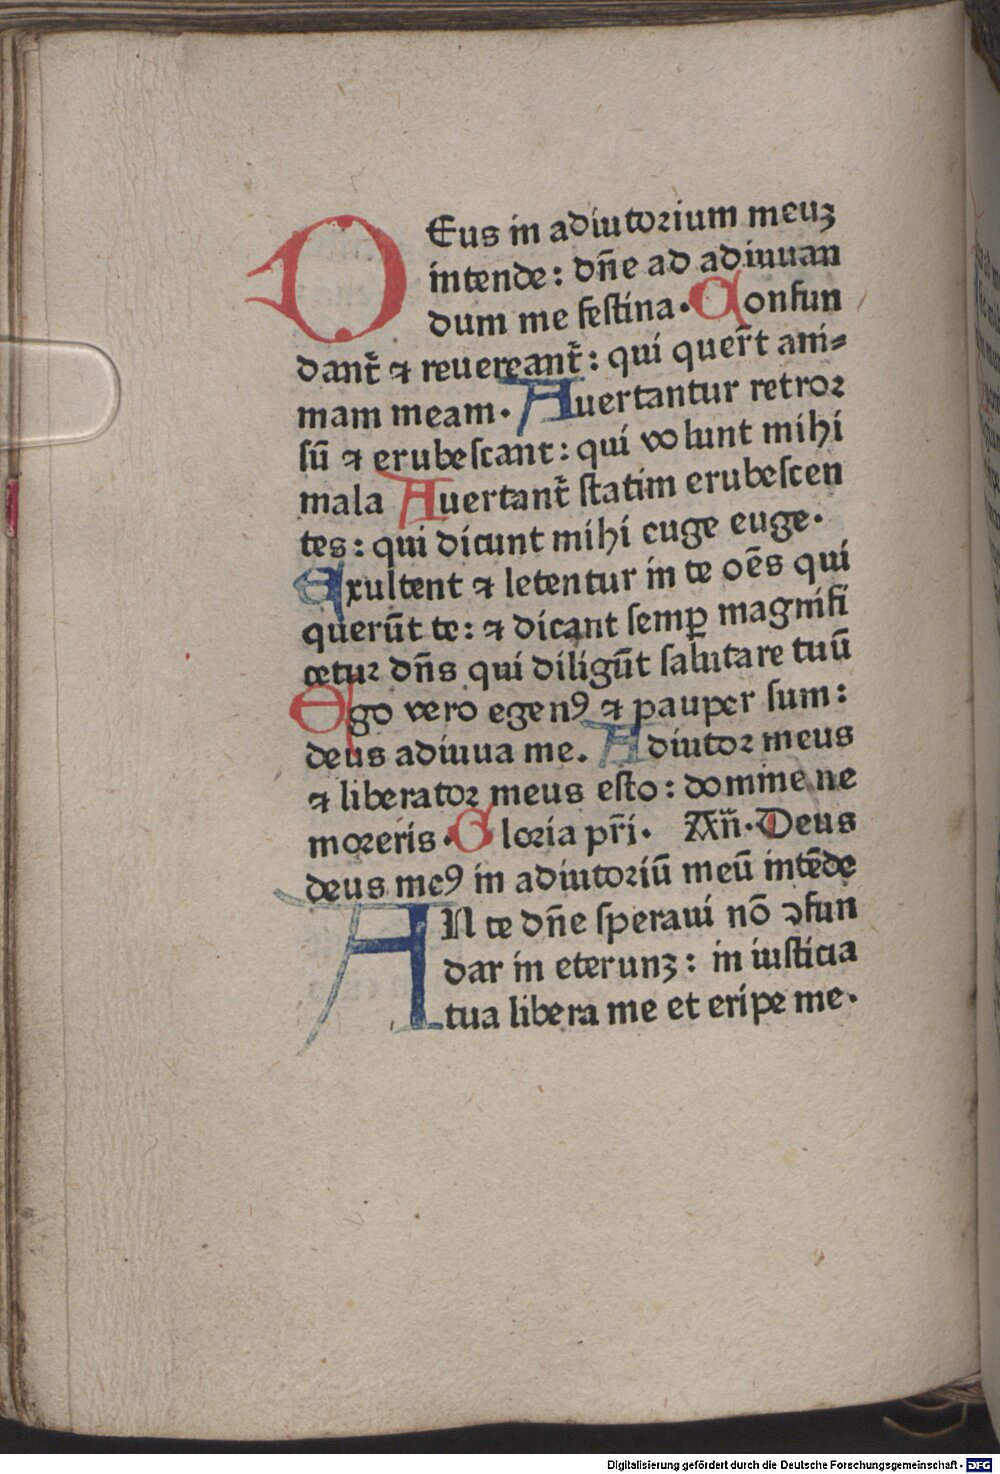 DEus in adiutorium meuꝫ
intende: dñe ad adiuuan
dum me festina. Confun
dant̄ ⁊ reuereant̄: qui quer̄t ani⸗
mam meam. Auertantur retror
sū ⁊ erubescant: qui volunt mihi
mala Auertant̄ statim erubescen
tes: qui dicunt mihi euge euge.
Exultent ⁊ letentur in te oēs qui
querūt te: ⁊ dicant semꝑ magnifi
cetur dñs qui diligūt salutare tuū
Ego vero egenꝰ ⁊ pauper sum:
deus adiuua me. Adiutor meus
⁊ liberator meus esto: domine ne
moreris. Gloria pr̄i. Añ. Deus
deus meꝰ in adiutoriū meū intēde
AN te dñe speraui nō ꝯfun
dar in eterunꝫ: in iusticia
tua libera me et eripe me.
Digitalisierung gefördert durch die Deutsche Forschungsgemeinschaft - DFG